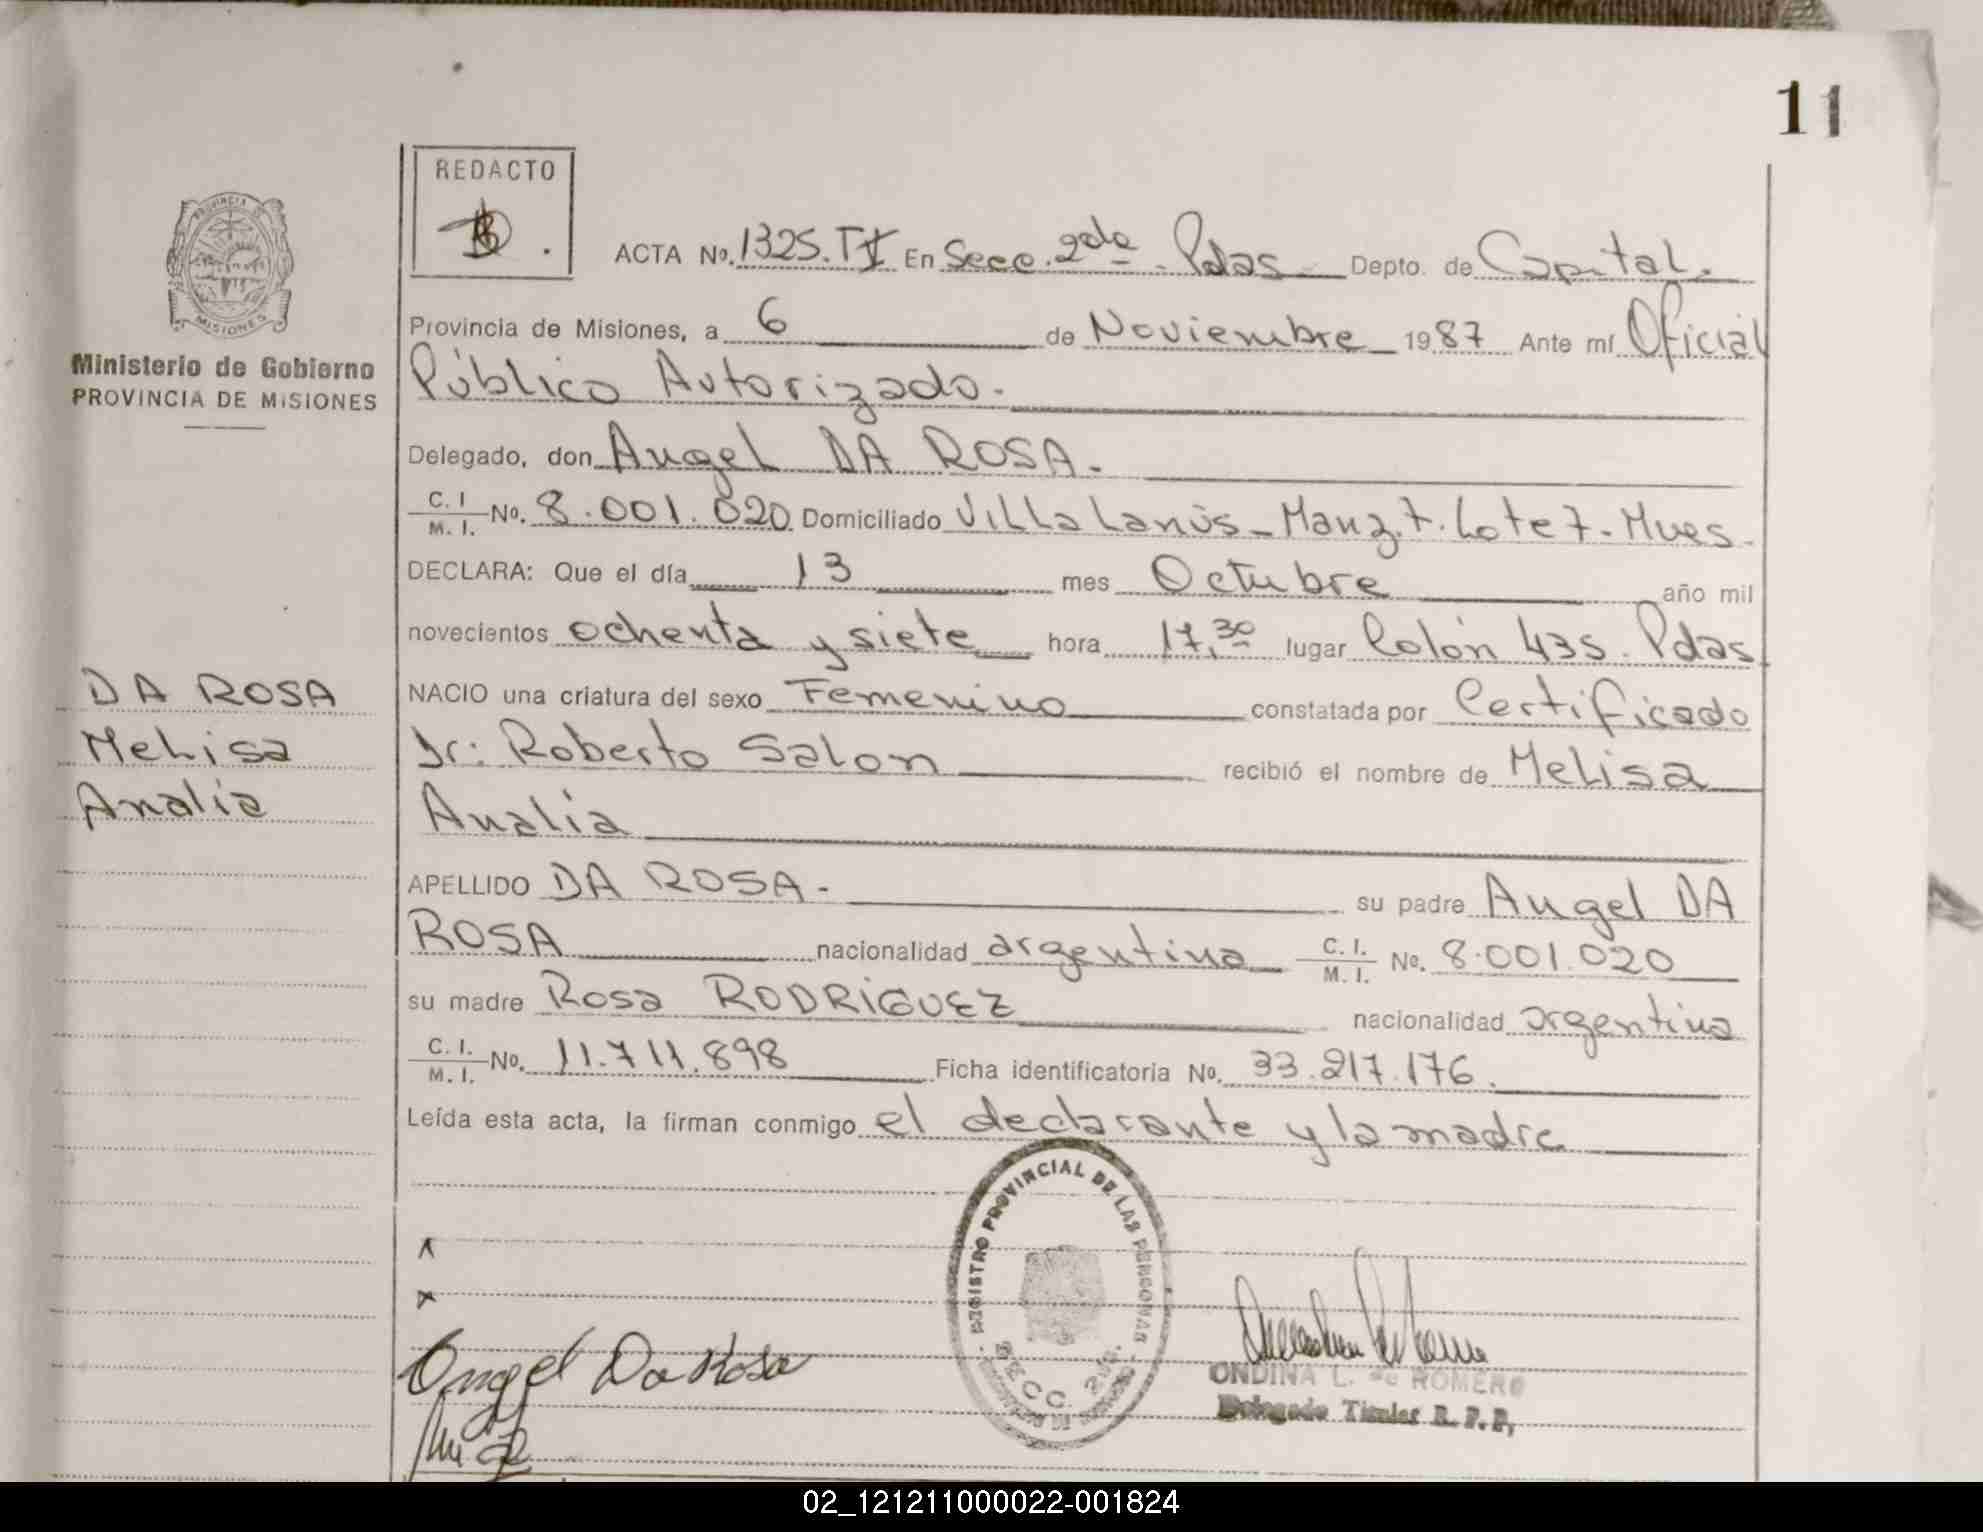 11
REDACTO
PROVINCIA DE
MISIONES
Ministerio de Gobierno
PROVINCIA DE MISIONES
ACTA No. 1325. En Secc. 2da Pdas Depto. de Capital.
Provincia de Misiones, a 6 de Noviembre 1987 Ante mí Oficial
Público Autorizado.
Delegado, don Angel DA ROSA.
C. I.
M. I. No. 8.001.020 Domiciliado Villa Lanús - Manz. 7. Lote 7.
DECLARA: Que el día 13 mes Octubre año mil
novecientos ochenta y siete hora 17,30 lugar Colón 435. Pdas
NACIO una criatura del sexo Femenino constatada por Certificado
Dr: Roberto Salon recibió el nombre de Melisa
Analía
APELLIDO DA ROSA. su padre Angel DA
ROSA nacionalidad argentina C. I.
M. I. No. 8.001.020
su madre Rosa RODRIGUEZ nacionalidad argentina
C. I.
M. I. No. 11.711.898 Ficha identificatoria No. 33.217.176.
Leída esta acta, la firman conmigo el declarante y la madre
DA ROSA
Melisa
Analía
REGISTRO PROVINCIAL DE LAS PERSONAS
SECC. 2da.
Angel Da Rosa
ONDINA L. de ROMERO
Delegado Titular R. P. P.
02_121211000022-001824